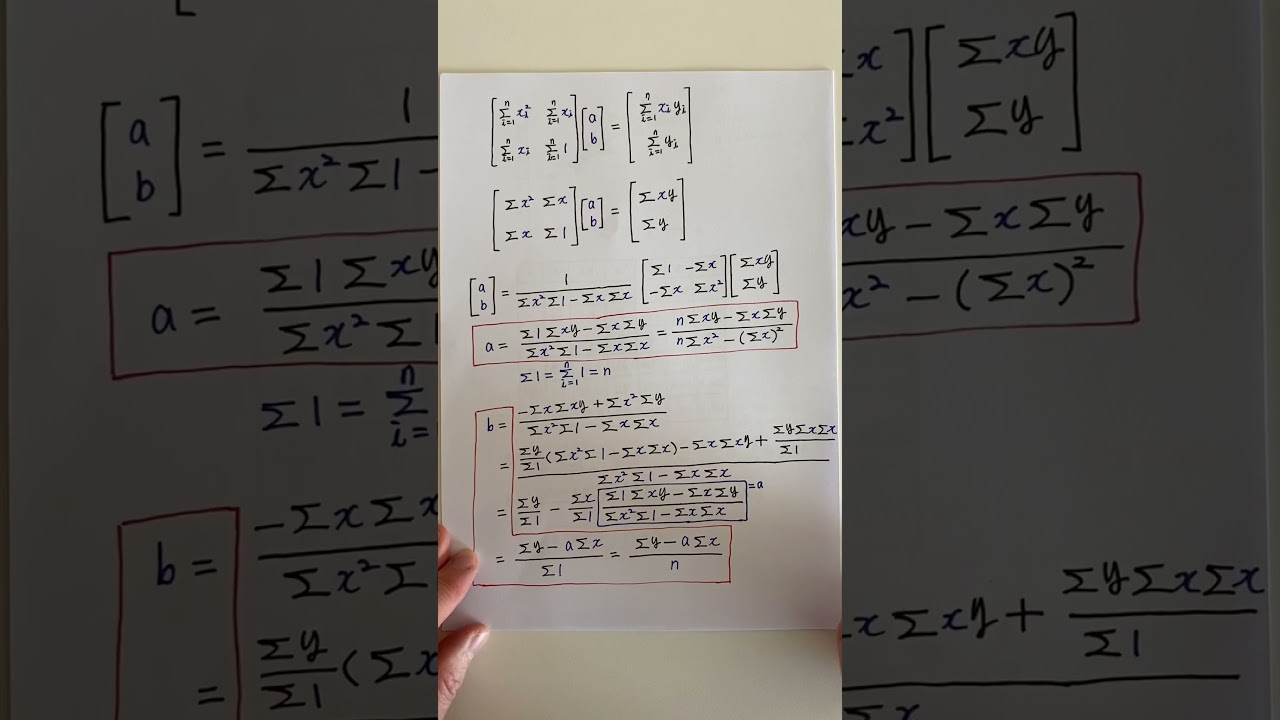 [∑ᵢ₌₁ⁿ xᵢ² ∑ᵢ₌₁ⁿ xᵢ; ∑ᵢ₌₁ⁿ xᵢ ∑ᵢ₌₁ⁿ 1] [a; b] = [∑ᵢ₌₁ⁿ xᵢ yᵢ; ∑ᵢ₌₁ⁿ yᵢ]
[∑x² ∑x; ∑x ∑1] [a; b] = [∑xy; ∑y]
[a; b] = 1/(∑x²∑1 − ∑x∑x) [∑1 −∑x; −∑x ∑x²] [∑xy; ∑y]
a = (∑1∑xy − ∑x∑y)/(∑x²∑1 − ∑x∑x) = (n∑xy − ∑x∑y)/(n∑x² − (∑x)²)
∑1 = ∑ᵢ₌₁ⁿ 1 = n
b = (−∑x∑xy + ∑x²∑y)/(∑x²∑1 − ∑x∑x)
= (∑y/∑1 (∑x²∑1 − ∑x∑x) − ∑x∑xy + ∑y∑x∑x/∑1)/(∑x²∑1 − ∑x∑x)
= ∑y/∑1 − ∑x/∑1 (∑1∑xy − ∑x∑y)/(∑x²∑1 − ∑x∑x) = a
= (∑y − a∑x)/∑1 = (∑y − a∑x)/n